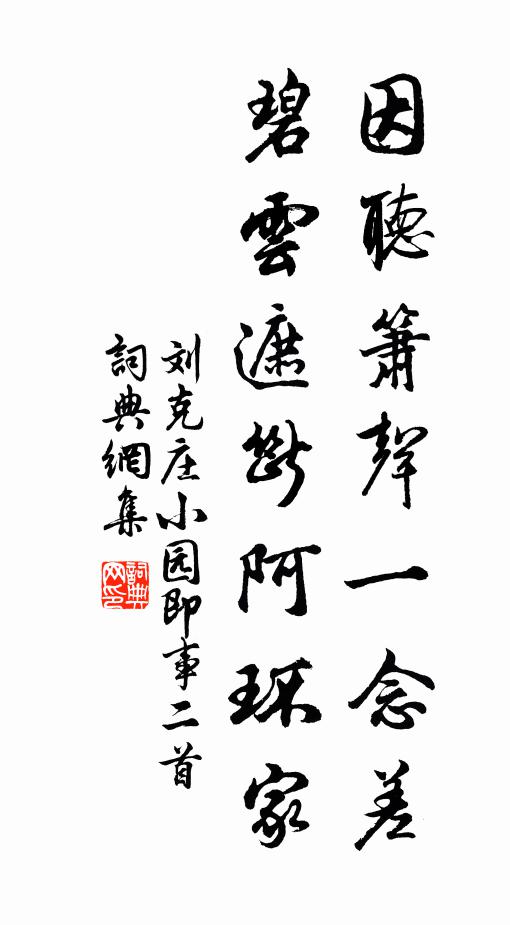 因聽簫聲一念差
碧雲遮斷阿环家
刘克庄小园即事二首
詞典網集
詞典网印